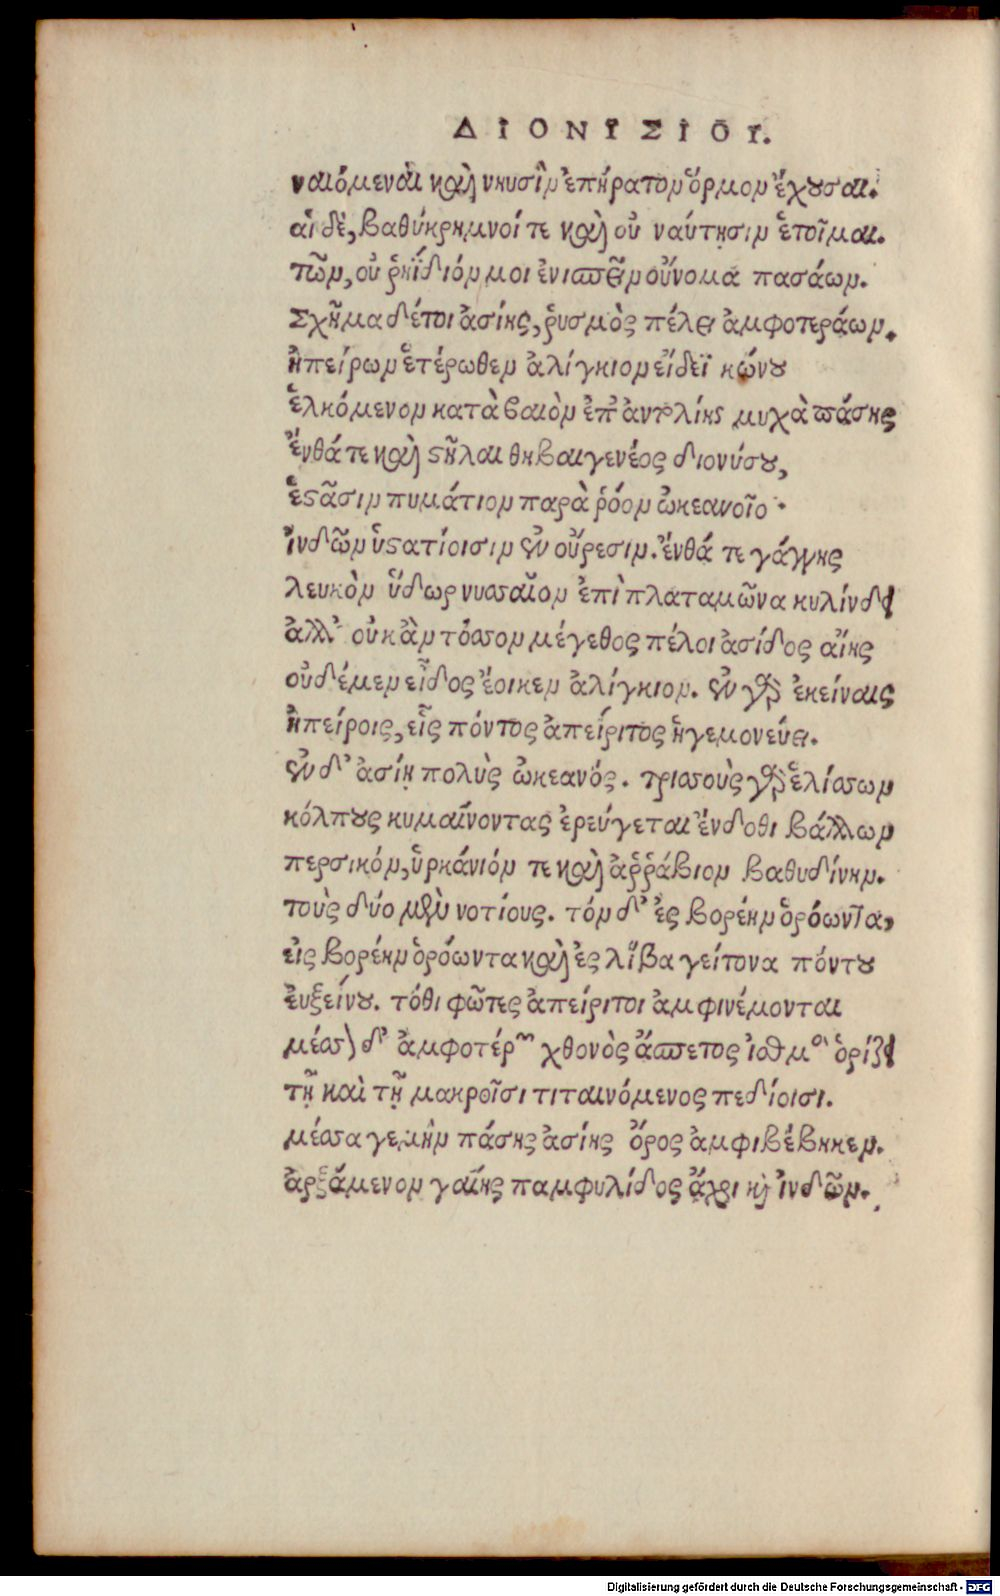 ΔΙΟΝΥΣΙΟΥ.
ναιόμεναι καὶ νηυσὶν ἐπήρατον ὅρμον ἔχουσαι.
αἱ δὲ, βαθύκρημνοί τε καὶ οὐ ναύτησιν ἑτοῖμαι.
τῶν, οὐ ῥηΐδιόν μοι ἐνισπεῖν οὔνομα πασάων.
Σχῆμα δέ τοι ἀσίης, ῥυσμὸς πέλει ἀμφοτεράων.
ἠπείρων ἑτέρωθεν ἀλίγκιον εἴδεϊ κώνου
ἑλκόμενον κατὰ βαιὸν ἐπ' ἀντολίης μυχὰ πάσης
ἔνθά τε καὶ στῆλαι θηβαιγενέος διονύσου,
ἑστᾶσιν πυμάτιον παρὰ ῥόον ὠκεανοῖο.
ἰνδῶν ὑστατίοισιν ἐν οὔρεσιν. ἔνθά τε γάγγης
λευκὸν ὕδωρ νυσσαῖον ἐπὶ πλαταμῶνα κυλίνδει
ἀλλ' οὐκ ἂν τόσσον μέγεθος πέλοι ἀσίδος αἴης
οὐδέ μεν εἶδος ἔοικεν ἀλίγκιον. ἐν γὰρ ἐκείναις
ἠπείροις, εἷς πόντος ἀπείριτος ἡγεμονεύει.
ἐν δ' ἀσίῃ πολὺς ὠκεανός. τρισσοὺς γὰρ ἑλίσσων
κόλπους κυμαίνοντας ἐρεύγεται ἔνδοθι βάλλων
περσικόν, ὑρκάνιόν τε καὶ ἀῤῥάβιον βαθυδίνην.
τοὺς δύο μὲν νοτίους. τόν δ' ἐς βορέην ὁρόωντα,
εἰς βορέην ὁρόωντα καὶ ἐς λίβα γείτονα πόντου
εὐξείνου. τόθι φῶτες ἀπείριτοι ἀμφινέμονται
μέσσον δ' ἀμφοτέρων χθονὸς ἄσπετος ἰσθμὸς ὁρίζει
τῇ καὶ τῇ μακροῖσι τιταινόμενος πεδίοισι.
μέσσα γε μὴν πάσης ἀσίης ὄρος ἀμφιβέβηκεν.
ἀρξάμενον γαίης παμφυλίδος ἄχρι καὶ ἰνδῶν.
Digitalisierung gefördert durch die Deutsche Forschungsgemeinschaft - DFG